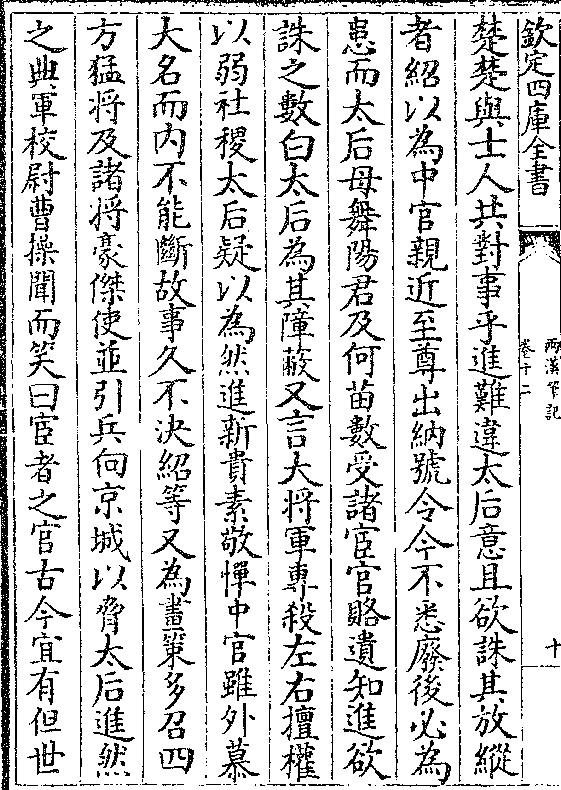 欽定四庫全書
兩漢筆記
卷十二
十
楚楚與士人共對事乎進難違太后意且欲誅其放縱
者紹以為中官親近至尊出納號令今不悉廢後必為
患而太后母舞陽君及何苗數受諸宦官賂遺知進欲
誅之數白太后為其障蔽又言大将軍專殺左右擅權
以弱社稷太后疑以為然進新貴素敬憚中官雖外慕
大名而内不能斷故事久不決紹等又為畫策多召四
方猛将及諸将豪傑使並引兵向京城以脅太后進然
之典軍校尉曹操聞而笑曰宦者之官古今宜有但世